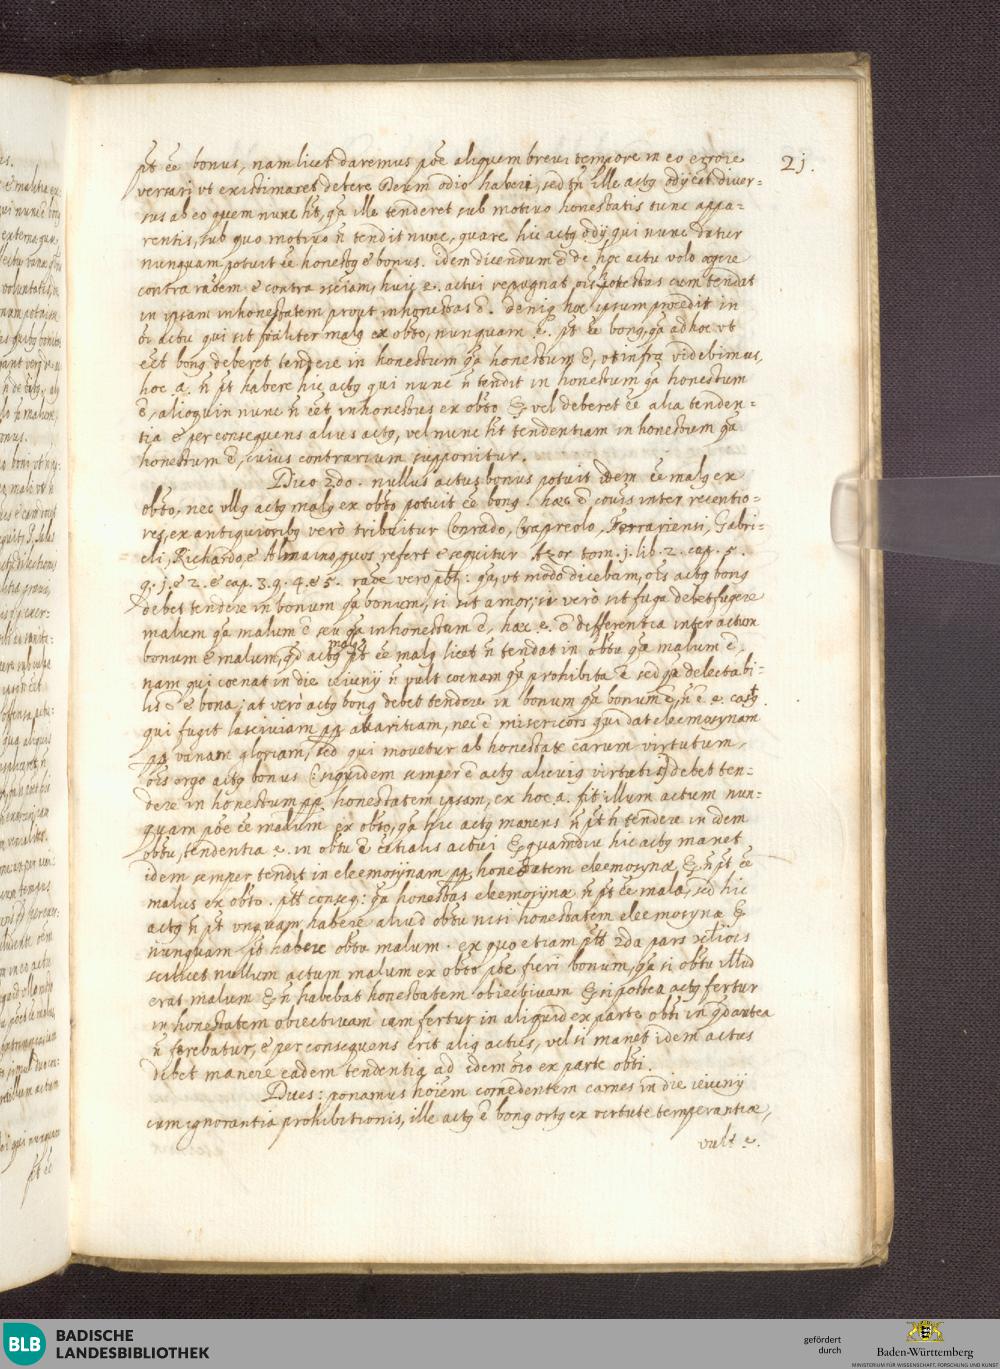 21.
pt eē bonus, nam licet daremus poē aliquem brevi tempore in eo errore
versari vt existimaret debere Deum odio haberi, sed tn̄ ille actq odij eēt diver=
sus ab eo quem nunc ht, qa ille tenderet sub motivo honestatis tunc appa=
rentis, sub quo motivo n̄ tendit nunc, quare hic actq odij qui nunc datur
nunquam potuit eē honestq & bonus. idem dicendum ē de hoc actu volo
contra raōem & contra huic e. actui repugnat cum tendat
in ipsam inhonestatem prout inhonestas ē. deniq hoc ipsum procedit in
oī actu qui sit malq ex obto, nunquam e. pt eē bonq, qa ad hoc vt
eēt bonq deberet tendere in honestum qa honestum ē, vt infra videbimus,
hoc a. n̄ pt habere hic actq qui nunc n̄ tendit in honestum qa honestum
ē, alioquin nunc n̄ eēt inhonestus ex obto & vel deberet eē alia tenden=
tia & per consequens alius actq, vel nunc ht tendentiam in honestum qa
honestum ē, cuius contrarium supponitur.
Dico 2do. nullus actus bonus potuit idem eē malq ex
obto, nec ullq actq malq ex obto potuit eē bonq. haec ē cōuis inter recentio=
res, ex antiquioribq verò tribuitur Conrado, Capreolo, Ferrarienti, Gabri=
eli, Richardo, & Almaino, quos refert & sequitur Azor tom. j. lib. 2. cap. 5.
q. j. & 2. & cap. 3. q. 4. & 5. raōe vero : qa, vt modo dicebam, oīs actq bonq
debet tendere in bonum qa bonum, si sit amor; si verò sit fuga debet fugere
malum qa malum ē seu qa inhonestum ē, haec e. ē differentia inter actum
bonum & malum, qd actq malq pt eē malq licet n̄ tendat in obtu qa malum ē,
nam qui coenat in die ieiunij n̄ vult coenam qa prohibita ē sed qa delectabi=
lis ē & bona; at verò actq bonq debet tendere in bonum qa bonum ē, n̄ ē e. castq
qui fugit lasciviam pp avaritiam, nec ē misericors qui dat eleemosynam
pp vanam gloriam, sed qui movetur ab honestate earum virtutum,
oīs ergo actq bonus (: siquidem semper ē actq alicuiq virtutis :) debet ten=
dere in honestum pp honestatem ipsam, ex hoc a. fit illum actum nun=
quam poē eē malum ex obto, qa hic actq manens n̄ pt n̄ tendere in idem
obtu, tendentia e. in obtu ē eētialis actui & quamdiu hic actq manet
idem semper tendit in eleemosynam pp honestatem eleemosynae & n̄ pt eē
malus ex obto. conseq: qa honestas eleemosynae n̄ pt eē mala, sed hic
actq n̄ pt unquam habere aliud obtu nisi honestatem eleemosynae &
nunquam pt habere obtu malum. ex quo etiam 2da pars
scilicet nullum actum malum ex obto poē fieri bonum, qa si obtu illud
erat malum & n̄ habebat honestatem obiectivam & si postea actq fertur
in honestatem obiectivam iam fertur in aliquid ex parte obti in qd antea
n̄ ferebatur, & per consequens erit aliq actus, vel si manet idem actus
debet manere eadem tendentia ad idem oīo ex parte obti.
Dices: ponamus hoīem comedentem carnes in die ieiunij
cum ignorantia prohibitionis, ille actq ē bonq ortq ex virtute temperantiae,
vult e.
BLB BADISCHE
LANDESBIBLIOTHEK
gefördert
durch
Baden-Württemberg
MINISTERIUM FÜR WISSENSCHAFT, FORSCHUNG UND KUNST